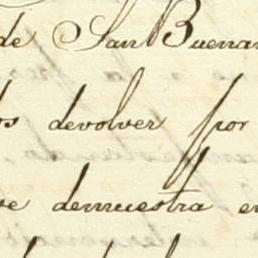 de San Buena
os devolver por
ve demuestra e